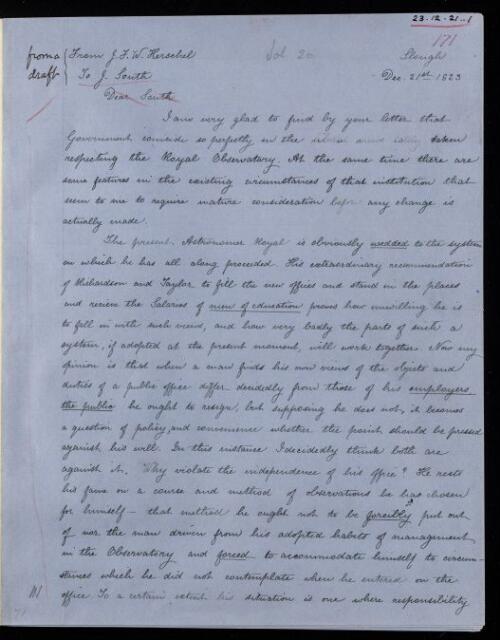 23.12.21.1
171
from a From J. F. W. Herschel Vol 20 Slough
draft To J. South Dec. 21st 1823
Dear South
I am very glad to find by your letter that
Government coincide so perfectly in the taken
respecting the Royal Observatory. At the same time there are
some features in the existing circumstances of that institution that
seem to me to require mature consideration before any change is
actually made.
The present Astronomer Royal is obviously wedded to the system
on which he has all along proceeded. His extraordinary recommendation
of Richardson and Taylor to fill the new offices and stand in the places
and receive the Salaries of men of education proves how unwilling he is
to fall in with such views, and how very badly the parts of such a
system, if adopted at the present moment, will work together. Now my
opinion is that when a man finds his own views of the objects and
duties of a public office differ decidedly from those of his employers,
the public he ought to resign, but supposing he does not, it becomes
a question of policy and convenience whether the point should be pressed
against his will. In this instance I decidedly think both are
against it. Why violate the independence of his office? He rests
his fame on a course and method of observations he has chosen
for himself – that method he ought not to be forcibly put out
of nor the man driven from his adopted habits of management
in the Observatory and forced to accommodate himself to circum-
stances which he did not contemplate when he entered on the
office To a certain extent his situation is one where responsibility